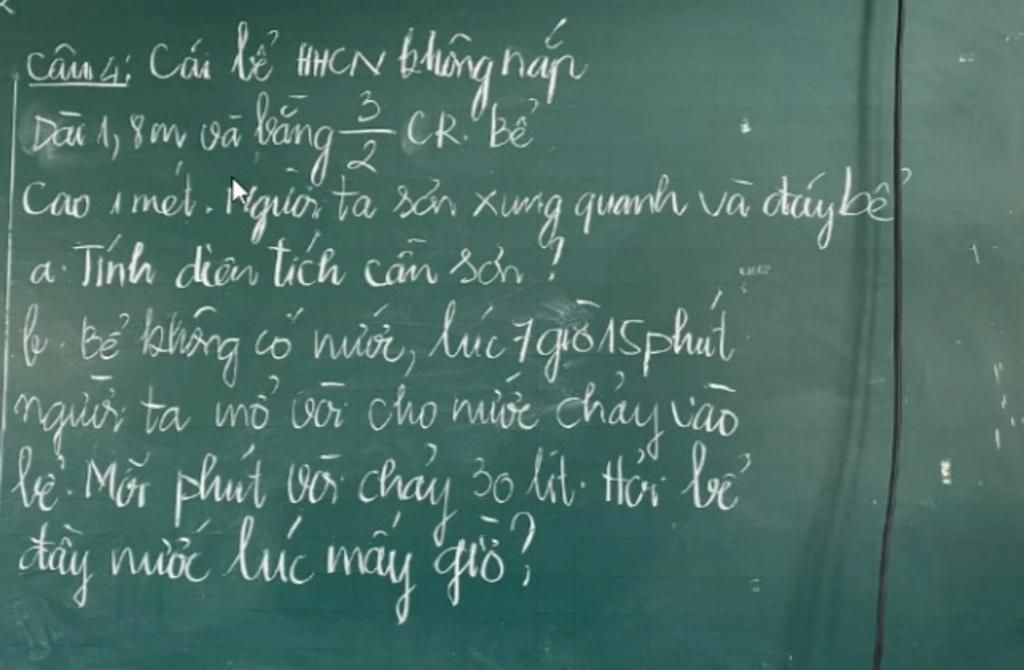 Câu 4: Cái bể HHCN không nắp
Dài 1,8m và bằng 3/2 CR. Bể
Cao 1 mét. Người ta sơn xung quanh và đáy bể
a. Tính diện tích cần sơn?
b. Bể không có nước, lúc 7 giờ 15 phút
người ta mở vòi cho nước chảy vào
bể. Mỗi phút vòi chảy 30 lít. Hỏi bể
đầy nước lúc mấy giờ?